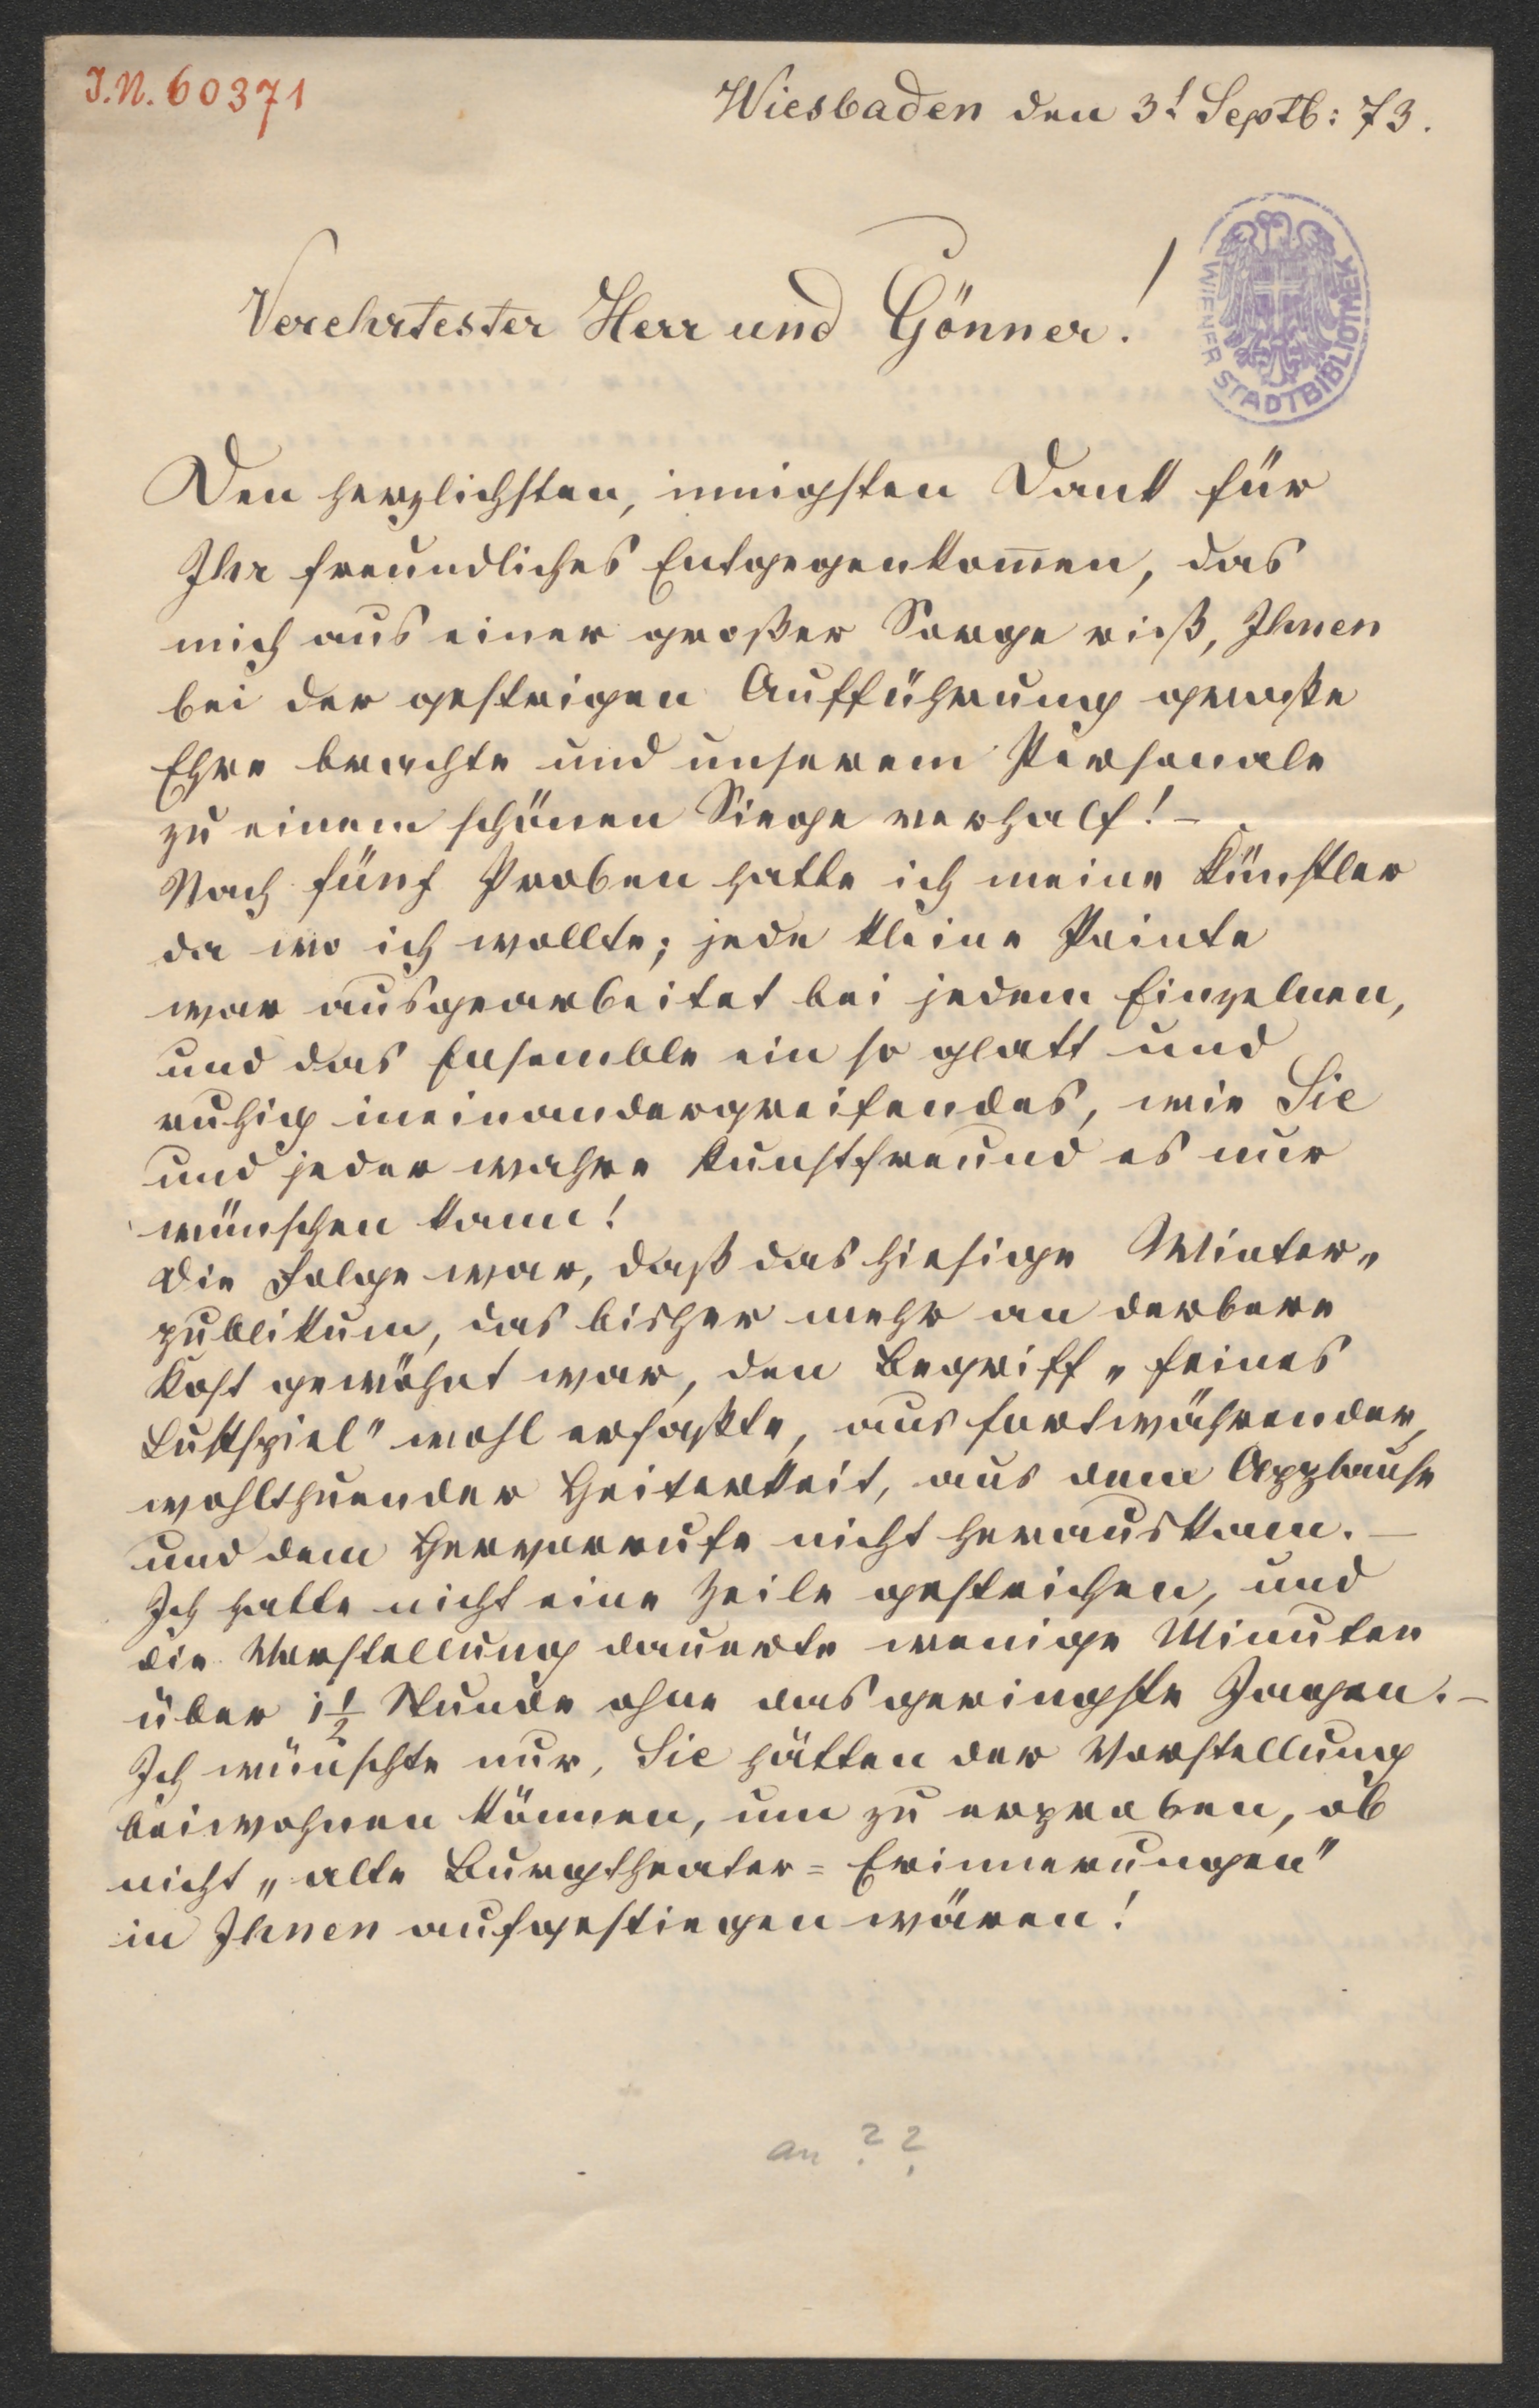 I.N. 60371
Wiesbaden den 3t Septb: 73.
Verehrtester Herr und Gönner!
WIENER STADTBIBLIOTHEK
Den herzlichsten, innigsten Dank für
Ihr freundliches Entgegenkom̅en, das
mich aus einer großer Sorge riß, Ihnen
bei der gestrigen Aufführung große
Ehre brachte und unserem Personale
zu einem schönen Siege verhalf! –
Nach fünf Proben hatte ich meine Künstler
da wo ich wollte; jede kleine Pointe
war ausgearbeitet bei jedem Einzelnen,
und das Ensemble ein so glatt und
ruhig ineinandergreifendes, wie Sie
und jeder wahre Kunstfreund es nur
wünschen kann!
Die Folge war, daß das hiesige Winter„
publikum, das bisher mehr an derbere
Kost gewöhnt war, den Begriff „feines
Lustspiel" wohl erfaßte, aus fortwährender,
wohlthuender Heiterkeit, aus dem Applause
und dem Hervorrufe nicht herauskam. –
Ich hatte nicht eine Zeile gestrichen, und
die Vorstellung dauerte wenige Minuten
über 1½ Stunde ohne das geringste Jagen. –
Ich wünschte nur, Sie hätten der Vorstellung
beiwohnen können, um zu erproben, ob
nicht „alte Burgtheater= Erinnerungen"
in Ihnen aufgestiegen wären!
an ? ?